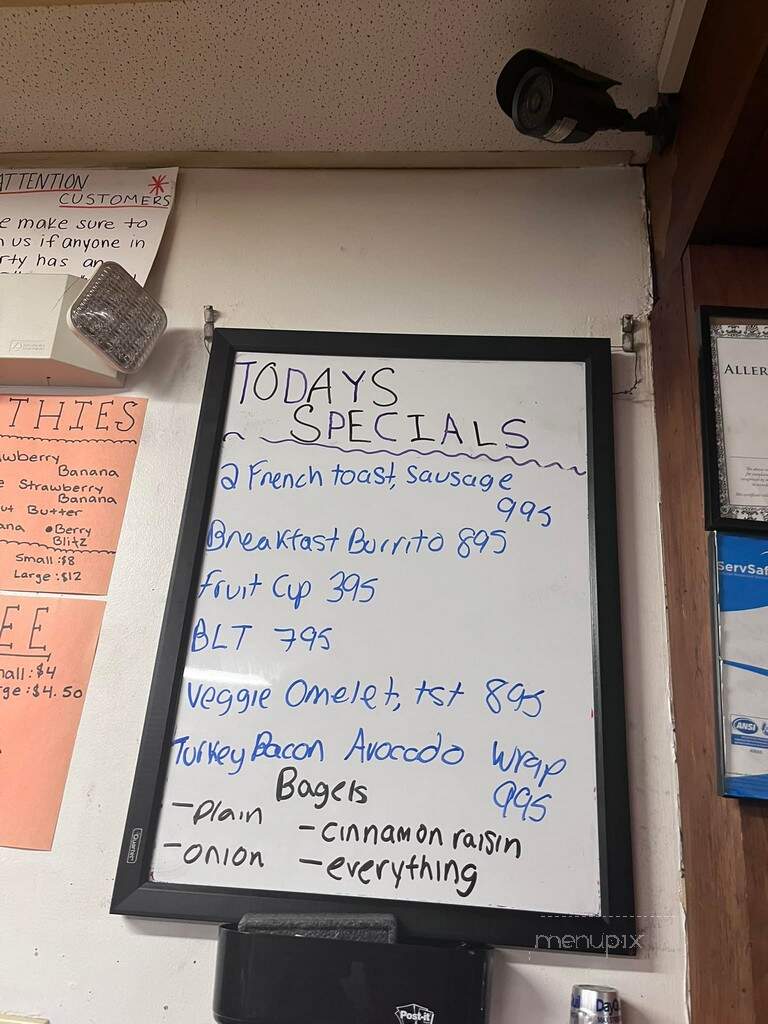 ATTENTION
CUSTOMERS
e make sure to
us if anyone in
rty has an
THIES
wberry
Banana
e Strawberry
Banana
ut Butter
ana • Berry
Blitz
Small: $8
Large: $12
EE
mall: $4
ge: $4.50
TODAYS
SPECIALS
2 French toast, sausage
995
Breakfast Burrito 895
Fruit Cup 395
BLT 795
Veggie Omelet, tst 895
Turkey Bacon Avocado Wrap
995
Bagels
- plain
- cinnamon raisin
- onion
- everything
Quartet
Post-it
ALLER
ServSaf
ANSI
menupix